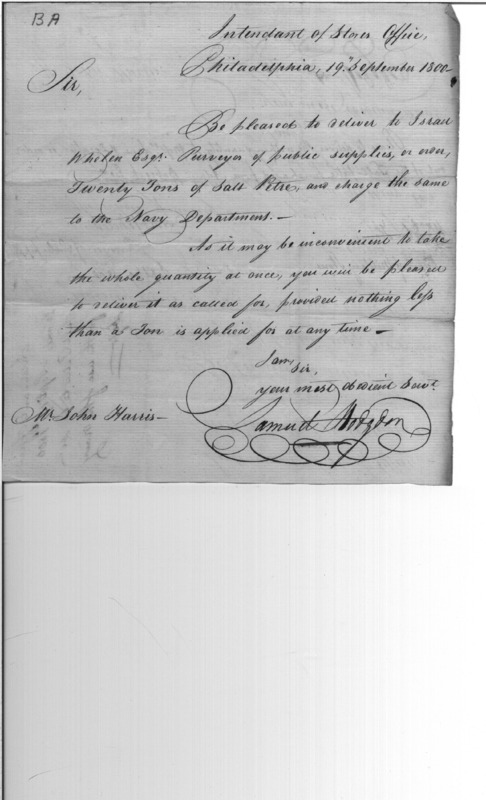 BA
Intendant of Stores Office,
Philadelphia, 19th September 1800
Sir,
Be pleased to deliver to Israel
Whelen Esqr. Purveyor of public supplies, or order,
Twenty Tons of Salt Petre, and charge the same
to the Navy Department.—
As it may be inconvenient to take
the whole quantity at once, you will be pleased
to deliver it as called for, provided nothing less
than a Ton is applied for at any time—
I am,
Sir,
your most obedient Servt.
Mr. John Harris—
Samuel Hodgdon